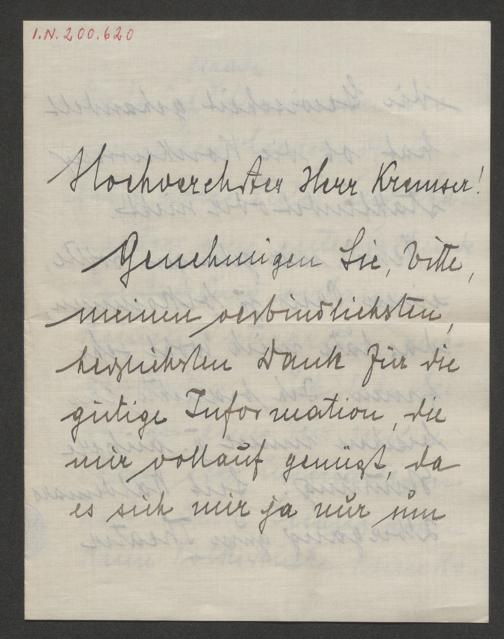 I.N. 200.620
Hochverehrter Herr Kremser!
Genehmigen Sie, bitte,
meinen verbindlichsten,
herzlichsten Dank für die
gütige Information, die
mir vollauf genügt, da
es sich mir ja nur um